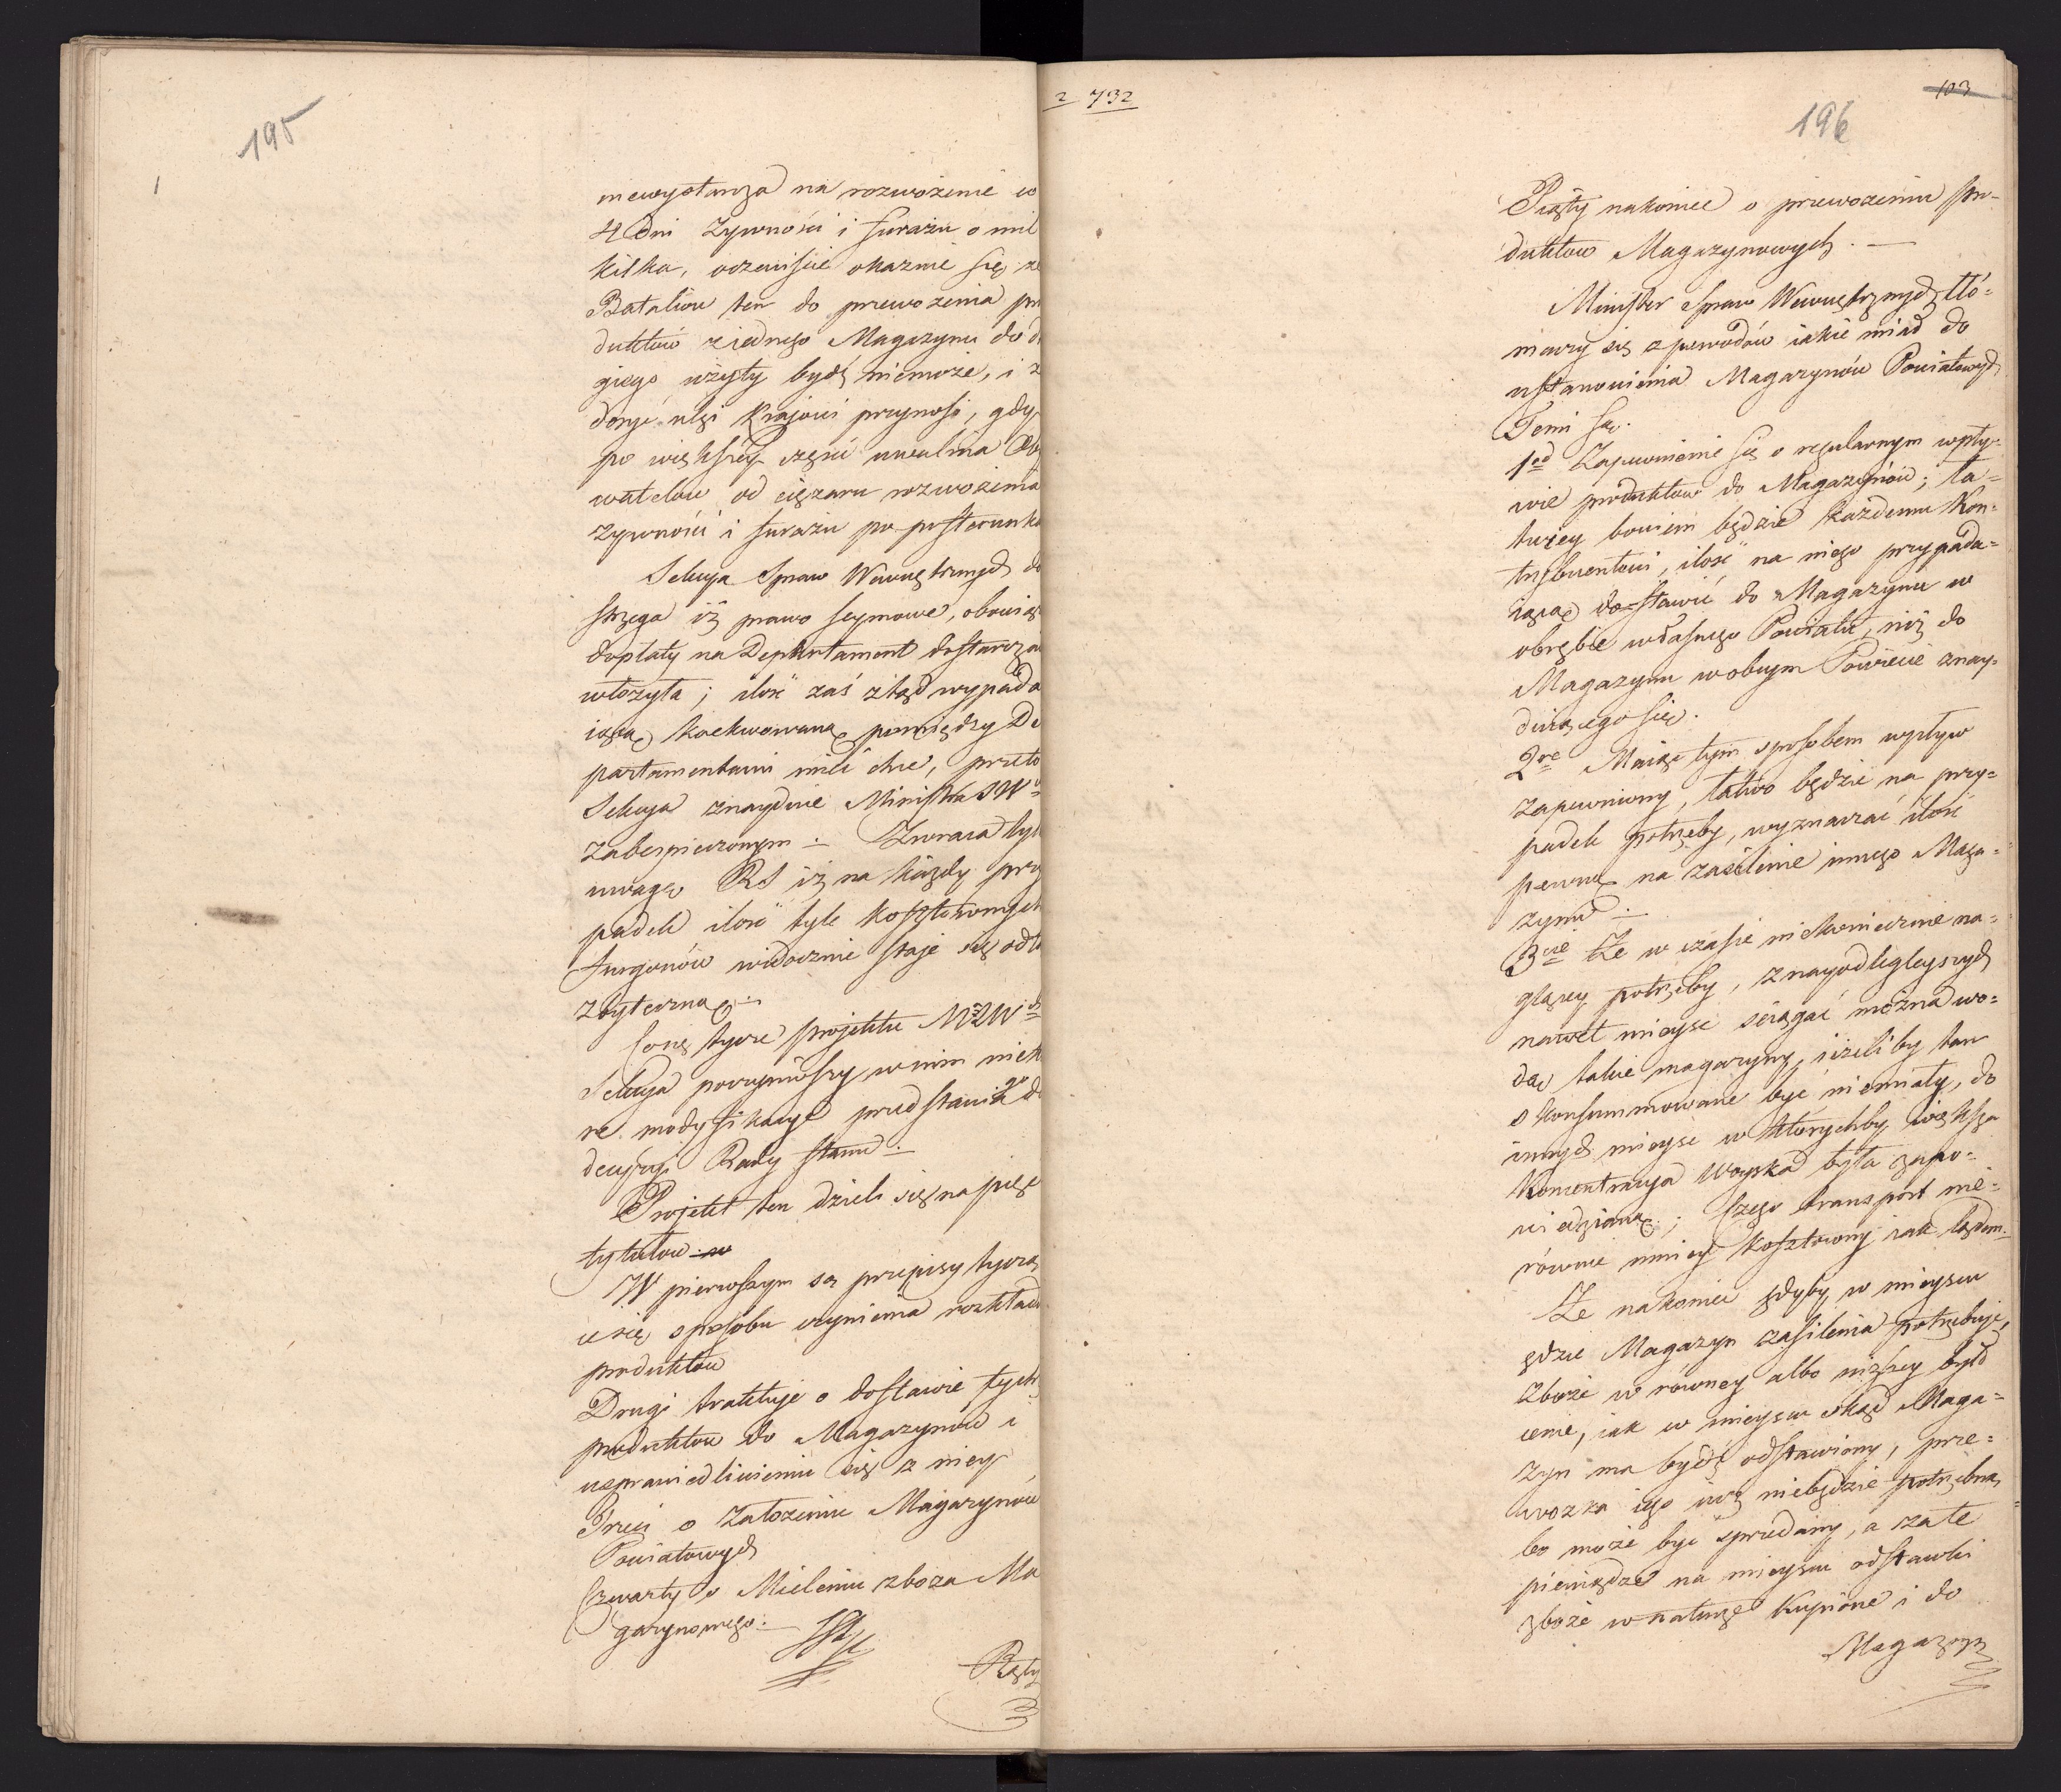 195
niewystarcza na rozwożenie w
4 dni Żywności i furażu o mil
kilka, oczewiście okaznie się że
Batalion ten do przewożenia pro
duktów z iednego Magazynu do dr
giego użyty bydź niemoże, i
dosyć ulgi Krajowi przynosi, gdy
po większey części uwalnia Oby
watelow od ciężaru rozwożenia
Żywności i furażu po posterunka
Sekcya Spraw Wewnętrznych do
strzega iż prawo seymowe, obowiąz
dopłaty na Departament dostarcza
włożyła; ilość zaś ztąd wypada
iącą koekwowaną pomiędzy De
partamentami mieć chce, przeto
Sekcya znayduie Ministra SW
zabespieczonym. Zwraca tyl
uwagę RS iż na każdy przy
padek ilość tyle kosztownych
furgonów widocznie staje się
zbyteczną.
Co się tycze projektu MSW
Sekcya poczyniwszy w nim niek
re modyfikacye przedstawia go do
decyzyi Rady Stanu.
Projekt ten dzieli się na pięć
tytułow.
W pierwszym są przepisy tyczą
ce się sposobu czynienia rozkład
produktow
Drugi traktuje o dostawie tych
produktow do Magazynow i
usprawiedliwieniu się z niey
Trzeci o założeniu Magazynów
Powiatowych
Czwarty o Mieleniu zboża Ma
gazynowego.
Piąty
2 732
103
196
Piąty nakoniec o przewożeniu pro-
duktow Magazynowych.
Minister Spraw Wewnętrznych tłó-
maczy się z powodów iakie miał do
ustanowienia Magazynów Powiatowych
Temi są.
1od Zapewnienie się o regularnym wpły-
wie produktow do Magazynów; ła-
twiey bowiem będzie każdemu Kon-
trybuentowi, ilość na niego przypada-
iącą dostawić do Magazynu w
obrębie własnego Powiatu, niż do
Magazynu w obcym Powiecie znay-
duiącego się.
2re Maiąc tym sposobem wpływ
zapewniony, łatwo będzie na przy-
padek potrzeby, wyznaczać ilość
pewną na zasilenie innego Maga-
zynu.
3cie Że w czasie niekoniecznie na-
głącey potrzeby, z nayodlegleyszych
nawet mieysc ściągać można wo-
dą takie magazyny, ieżeliby tam
skonsummowane być niemiały, do
innych mieysc w którychby większa
Koncentracya Woyska była zapo-
wiedzianą; Czego transport nie-
równie mniey kosztowny iak lądem.
Że nakoniec gdyby w mieyscu
gdzie Magazyn zasilenia potrzebuje,
zboże w równey albo niższey było
cenie, iak w mieyscu skąd Maga-
zyn ma bydź odstawiony, prze-
wozka iego iuż niebędzie potrzebna,
bo może być sprzedany, a za te
pieniądze na mieyscu odstawki
zboże w naturze kupione i do
Magazyn